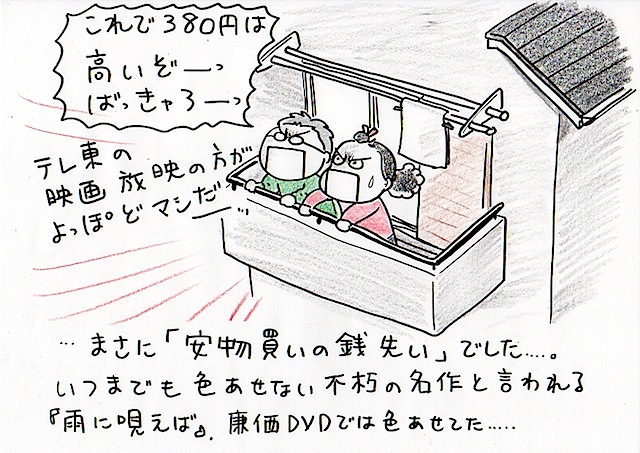 これで380円は
高いぞーっ
ばっきゃろーっ
テレ東の
映画放映の方が
よっぽどマシだー…
…まさに「安物買いの銭失い」でした….。
いつまでも色あせない不朽の名作と言われる
『雨に唄えば』、廉価DVDでは色あせてた…..